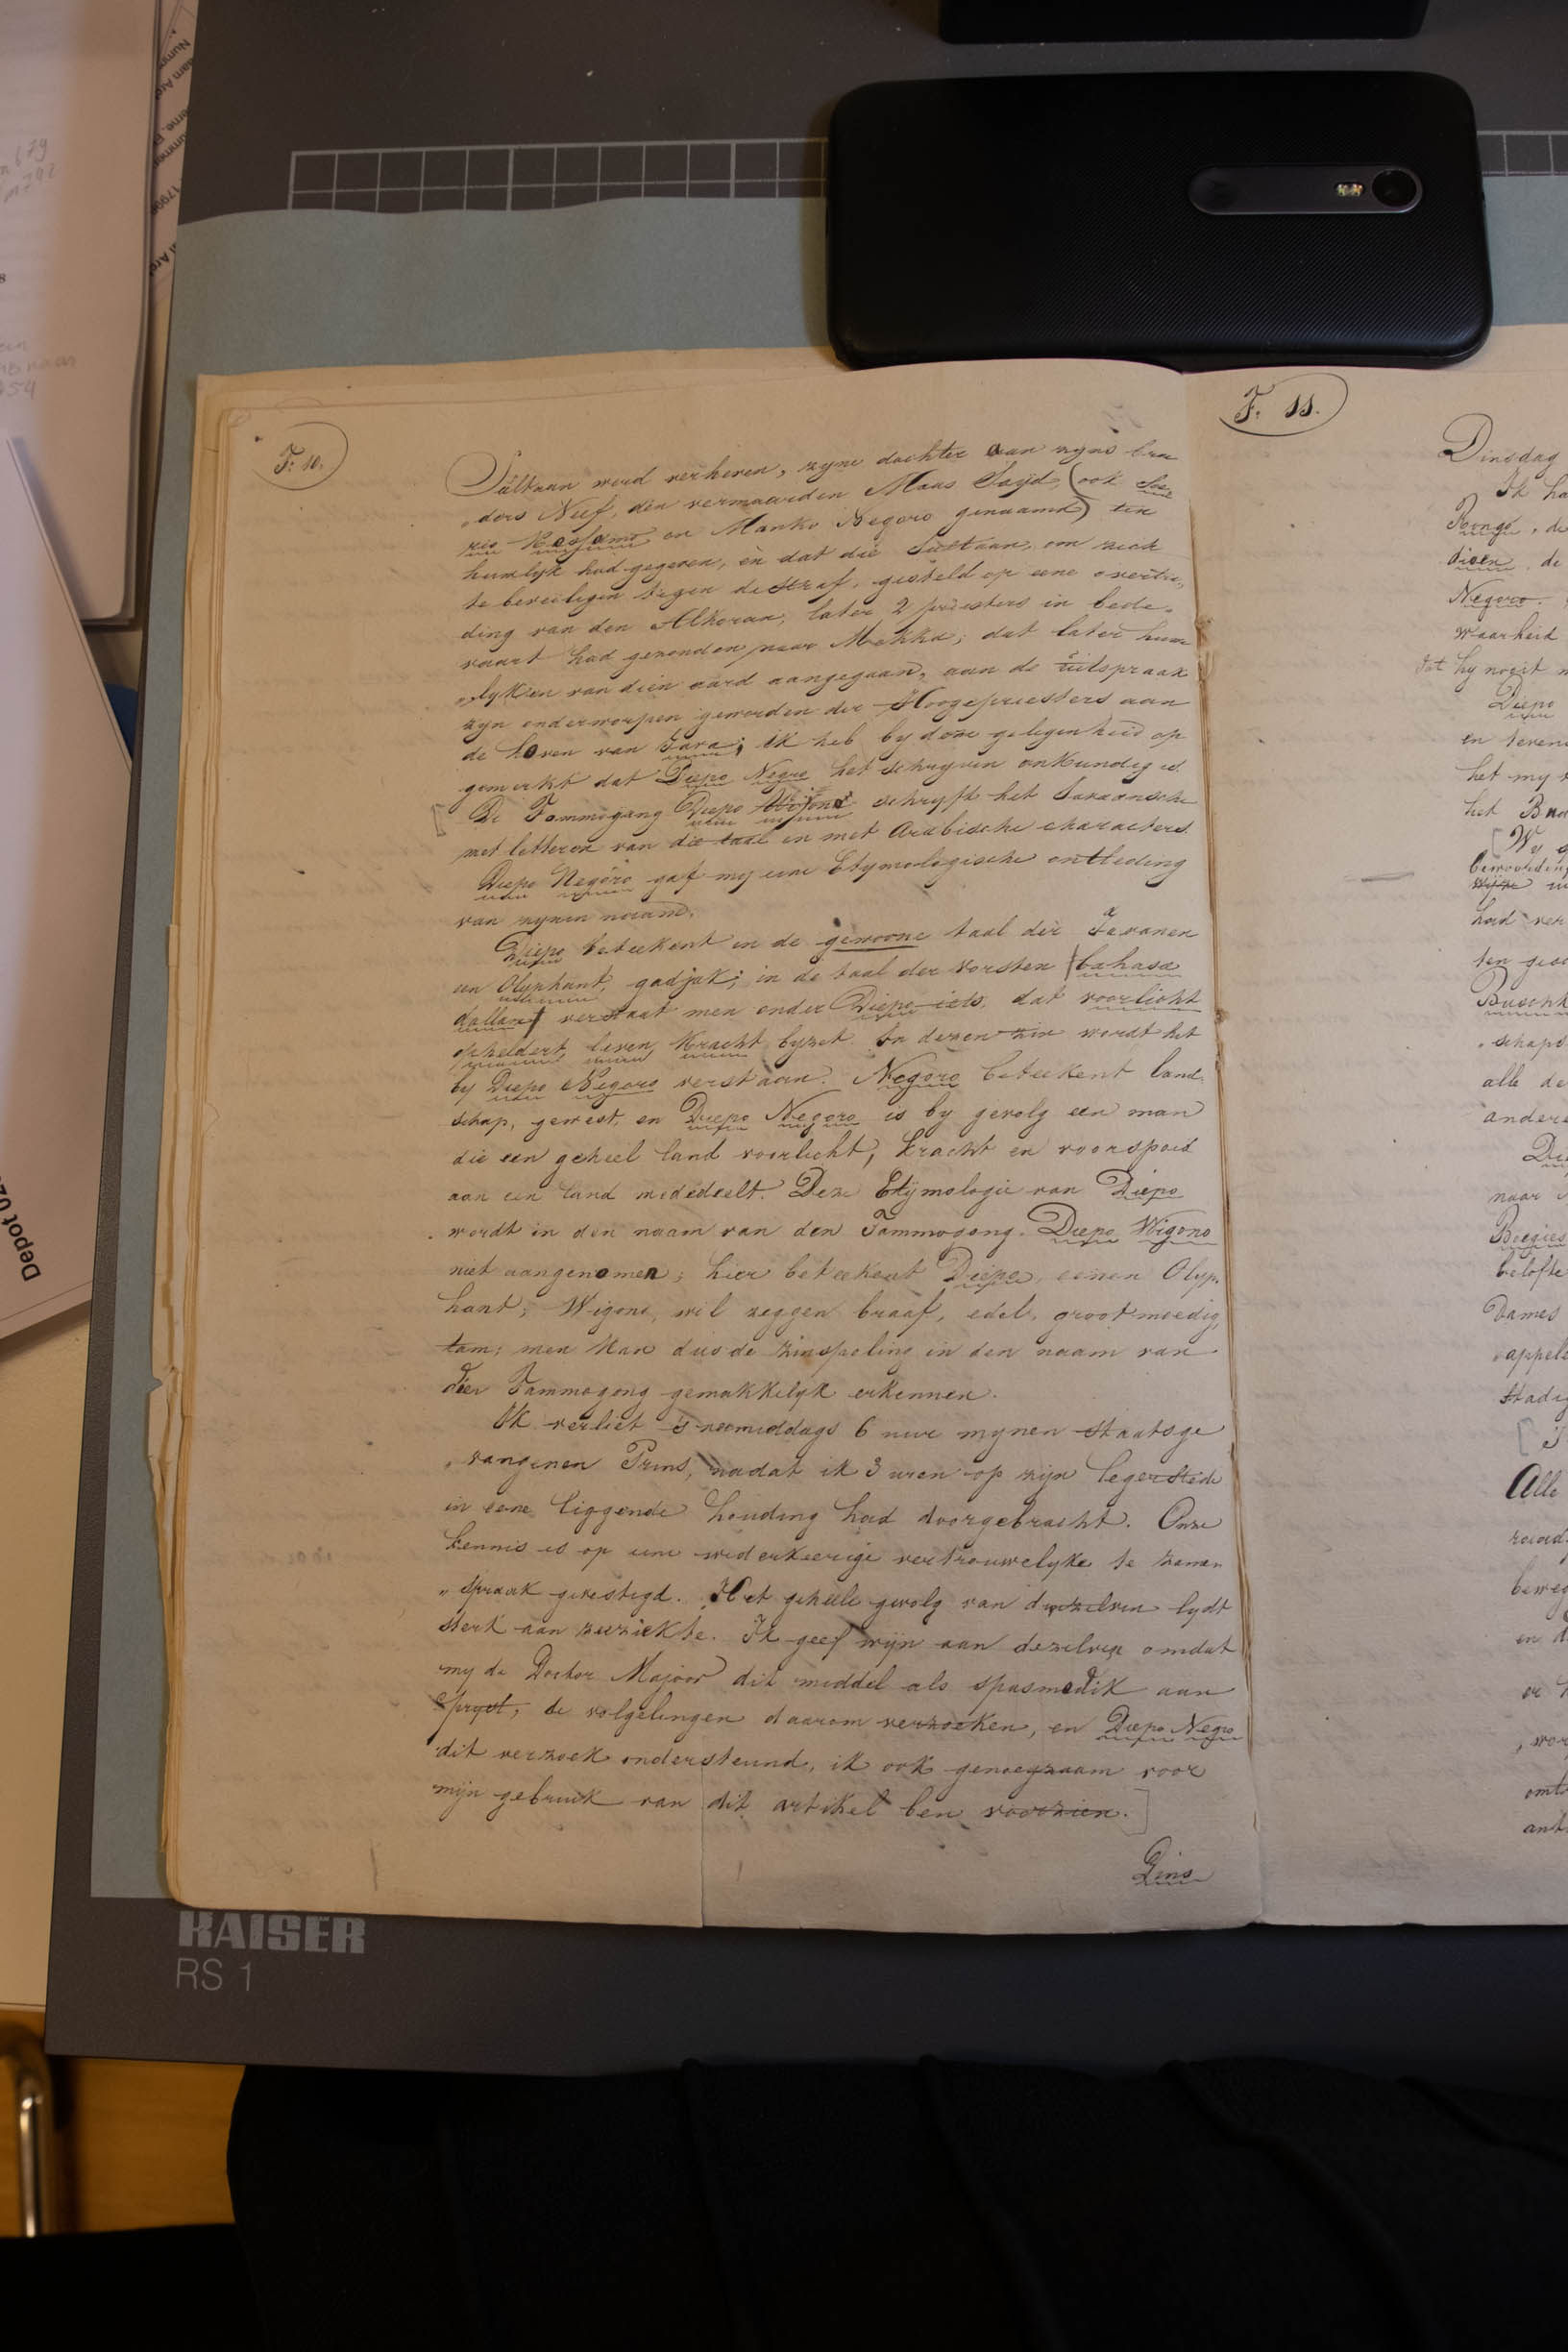 F. 10.
Sultaan werd verheven, zyne dochter aan zyns broe
„ders Neef, den vermaarden Maas Saijd, (ook Soe
rio Kossomo en Manko Negoro genaamd) ten
huwlyk had gegeven, en dat die Sultaan, om zich
te beveiligen tegen de straf, gesteld op eene overtre„
ding van den Alkoran, later 2 priesters in bede„
vaart had gezonden naar Mekka; dat later huw
„lyken van dien aard aangegaan, aan de uitspraak
zyn onderworpen geworden der Hoogepriesters aan
de hoven van Java; ik heb by deze gelegenheid op
gemerkt dat Diepo Negro het schryven onkundig is.
De Tommogong Diepo schryft het Javaansche
met letteren van die taal en met Arabische characters.
Diepo Negoro gaf my eene Etymologische ontleding
van zynen naam.
Diepo beteekent in de gewoone taal der Javanen
een Olyphant, gadjak; in de taal der Vorsten (bahasa
dallam) verstaat men onder Diepo iets, dat voorlicht
opheldert, leven, Kracht byzet. In dezen zin wordt het
by Diepo Negoro verstaan. Negoro beteekent land
schap, gewest, en Diepo Negoro is by gevolg een man
die een geheel land voorlicht, kracht en voorspoed
aan een land mededeelt. Deze Etÿmologie van Diepo
wordt in den naam van den Tommogong Diepo Wigono
niet aangenomen; hier beteekent Diepo, eenen Olyp„
hant; Wigono, wil zeggen braaf, edel, grootmoedig,
tam; men kan dus de zinspeling in den naam van
dien Tommogong gemakkelyk erkennen.
Ik verliet 's namiddags 6 ure mynen staatsge
„vangenen Prins, nadat ik 3 uren op zijn legerstede
in eene liggende houding had doorgebracht. Onze
kennis is op eene wederkeerige vertrouwelyke te zamen
„spraak gevestigd. Het geheele gevolg van dezelven lydt
sterk aan zeeziekte. Ik geef wijn aan dezelven omdat
my de Doctor Majoor dit middel als spasmodik aan
pryst, de volgelingen daarom verzoeken, en Diepo Negro
dit verzoek ondersteund, ik ook genoegzaam voor
mijn gebruik van dit artikel ben voorzien.
Dins
F. 11.
Dingsdag
Ik ha
dien, de
Negoro.
waarheid
dat hy nooit
Diepo
het my
[Wy
had ver
alle de
andere
naar
belofte
Dames
„appels
Alle
beweg
KAISER
RS 1
Depot 02